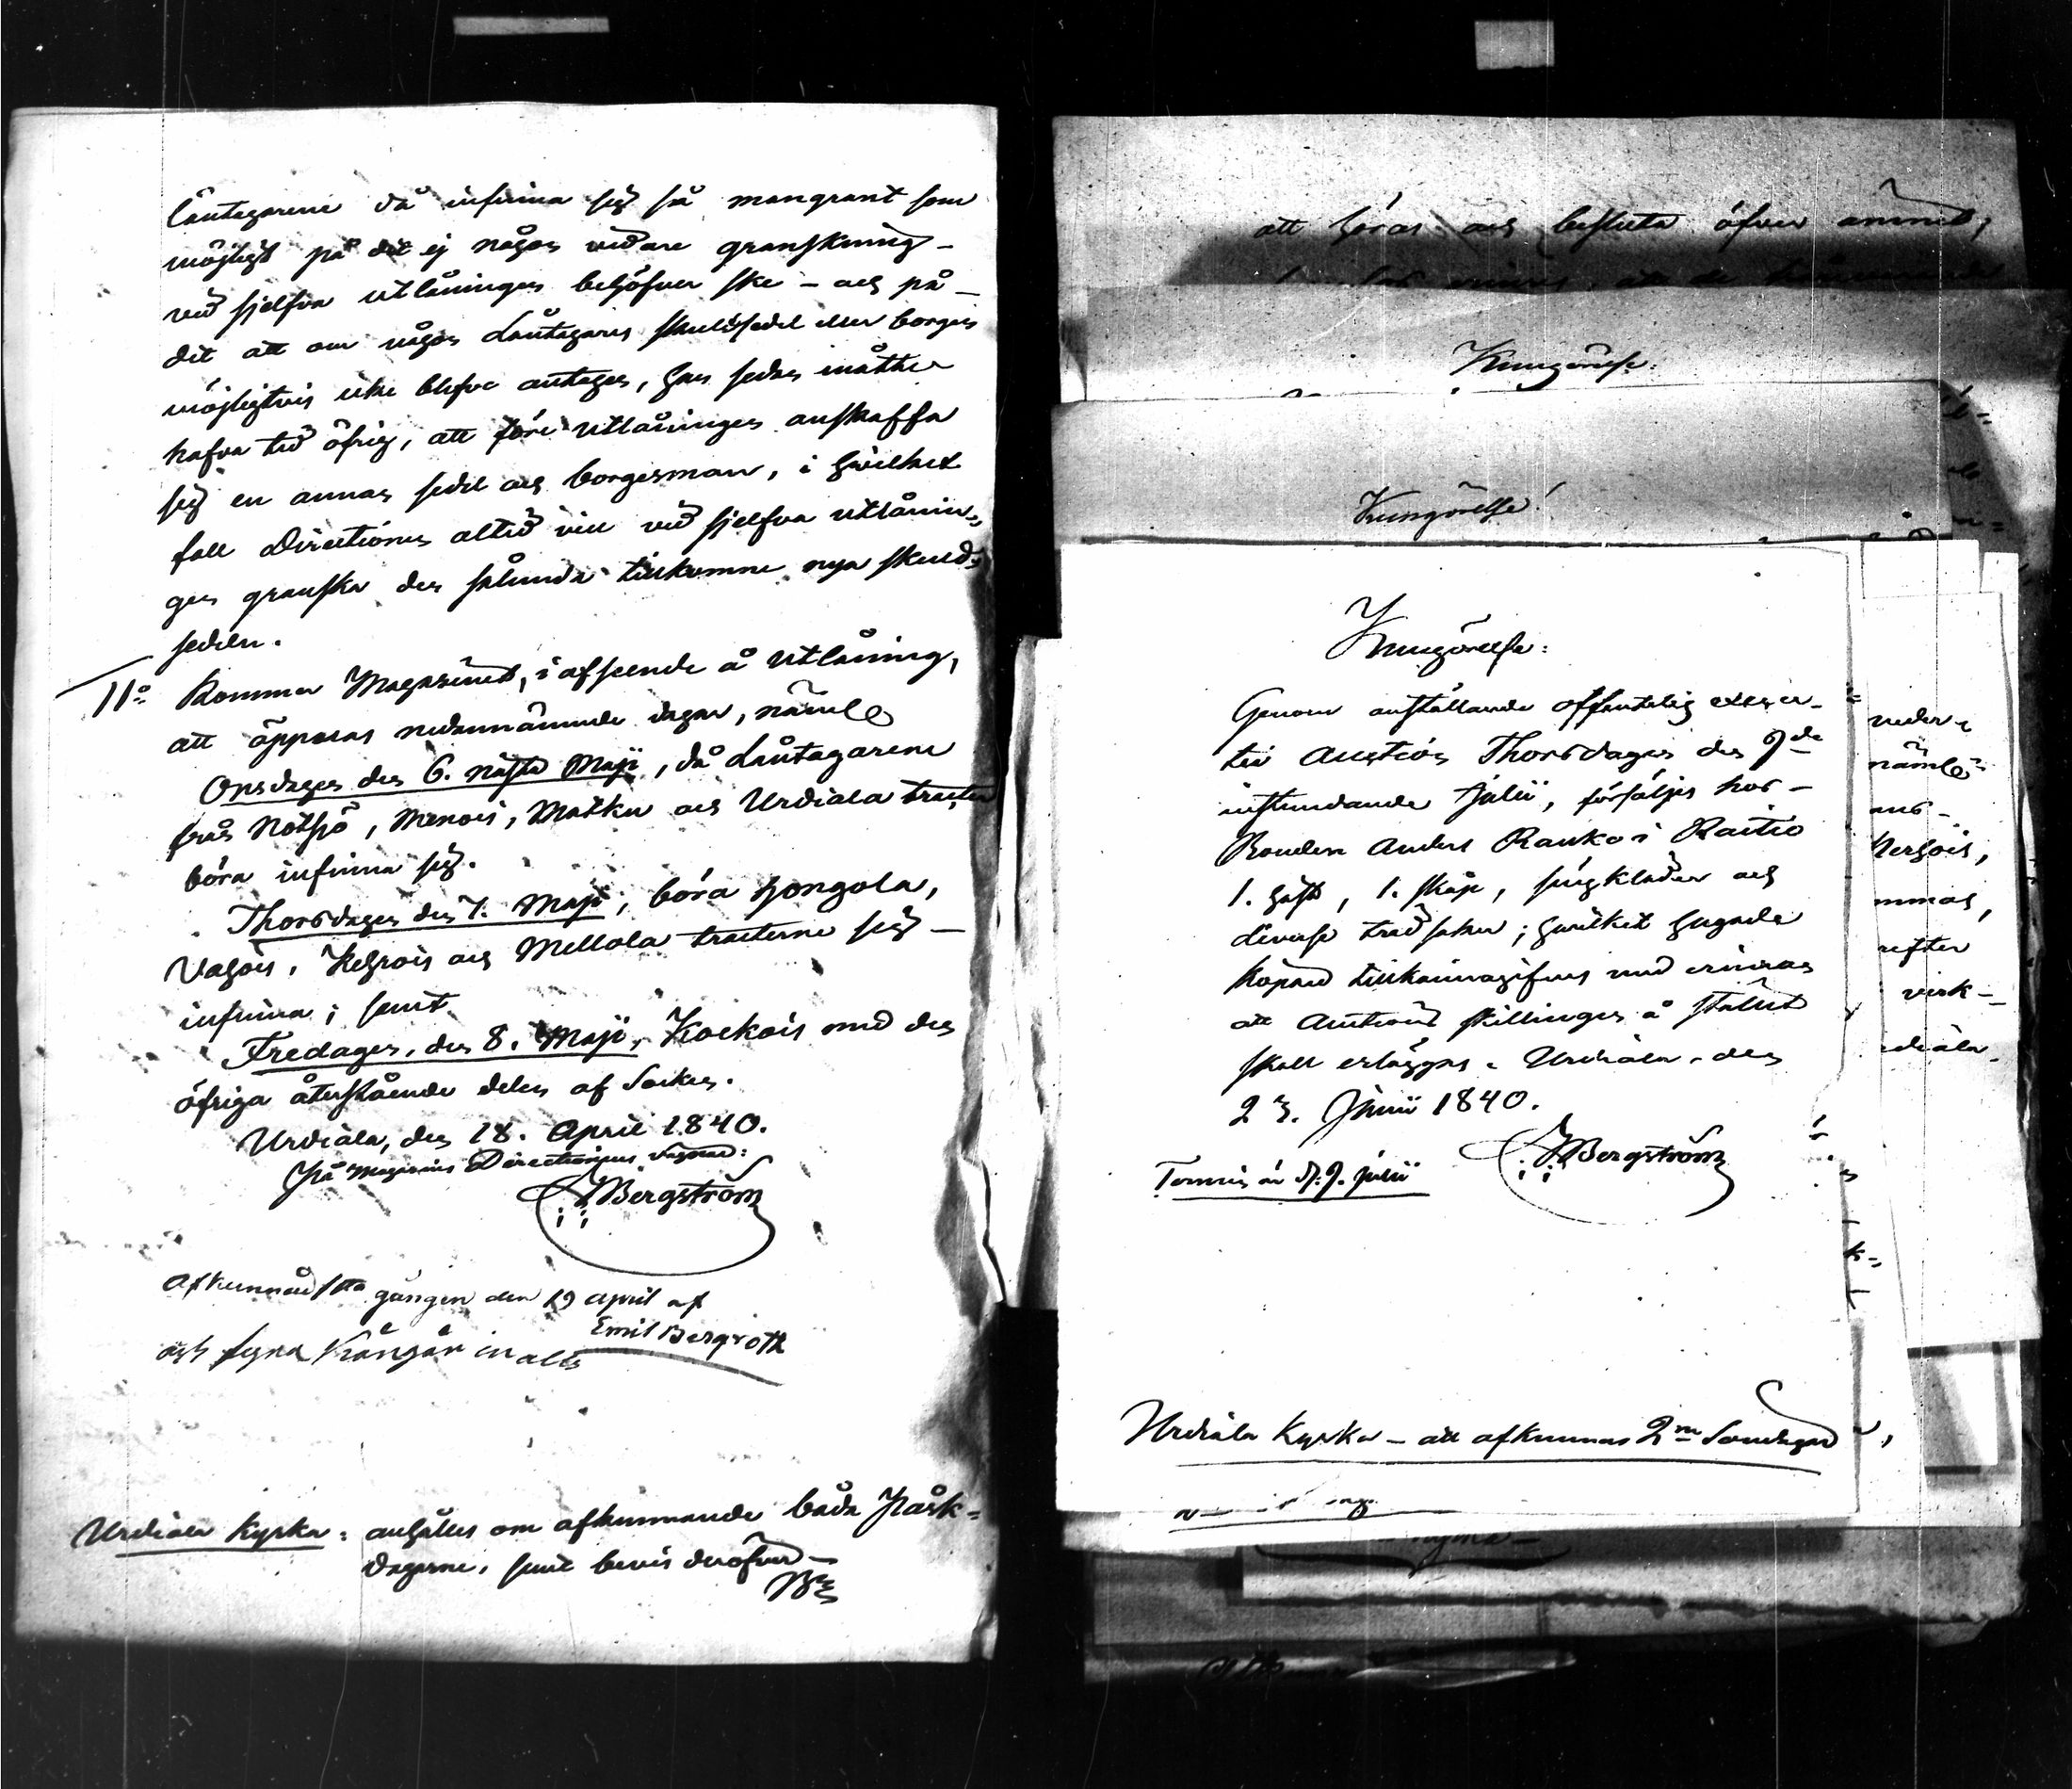 Låntagarene då infinna sig så mangrant som
möjligt på det ej någon vidare granskning
vid sjelfva utlåningen behöfver ske – och på
det att om någon Låntagares skuldsedel eller borgen
möjligtvis icke blefve antagen, han sedan måtte
hafva tid öfrig, att före utlåningen anskaffa
sig en annan sedel och borgesman, i hvilket
fall Directionen altid vill vid sjelfva utlånin-
gen granska den sålunda tillkomne nya skuld-
sedeln.
11o Kommer Magasinet, i afseende å utlåning,
att öppnas nedannämnde dagar, näml.
Onsdagen den 6. nästa Maji, då Låntagarene
från Notsjö, Menois, Matku och Urdiala tracten
böra infinna sig.
Thorsdagen den 7. Maji, böra Hongola,
Vahois, Kehrois och Mellola tracterne sig
infinna; samt
Fredagen, den 8. Maji, Kockois med den
öfriga återstående delen af Socken.
Urdiala, den 18. April 1840.
På Magasins Directionens vägnar:
Bergström
Afkunnad 1sta gången den 19 april af
Emil Bergroth
och
Urdiala Kyrka: anhålles om afkunnande båda Påsk-
dagarne, samt bevis deröfver –
att höras och besluta öfver ämnet,
Kungörelse:
Kungörelse!
Kungörelse:
Genom anställande offentelig
Auction Thorsdagen den 9de
instundande Julii, försäljes hos
Bonden Anders Rauko i Raitio
1. häst, 1. skåp, sängkläder och
diverse trädsaker; hvilket hugade
köpare tillkännagifves med erinran
att Auctions skillingen å stället
skall erläggas. Urdiala, den
23. Junii 1840.
Bergström
Termin är d. 9. Julii
Urdiala Kyrka – att afkunnas 2ne Söndagar
näml.
virk-